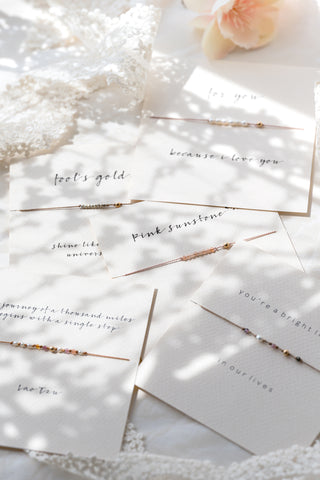 for you
because i love you
fool's gold
shine like
univers
pink sunstone
journey of a thousand miles
egins with a single step
lao tzu
you're a bright li
in our lives